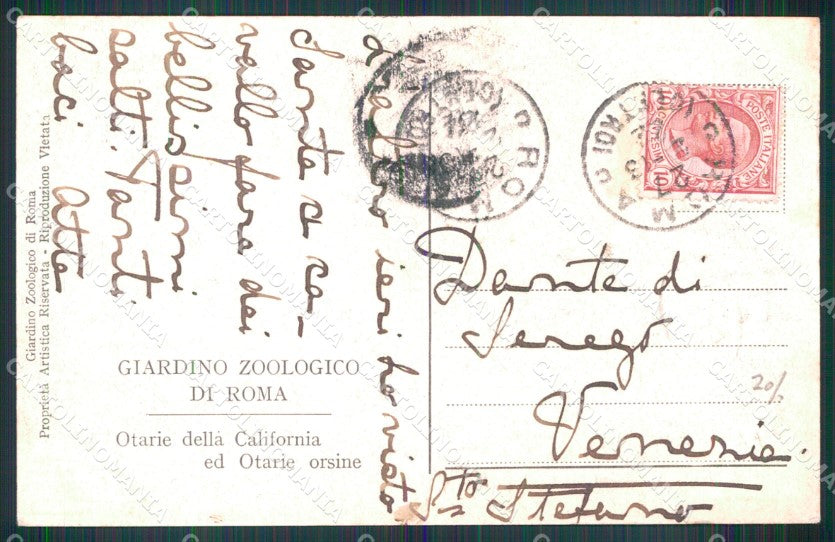 Giardino Zoologico di Roma
Proprietà Artistica Riservata - Riproduzione Vietata
ieri ho visto
Sante a ca-
vallo fara dei
bellissimi
salti. Tanti
baci
GIARDINO ZOOLOGICO
DI ROMA
Otarie della California
ed Otarie orsine
POSTE ITALIANE
10 CENTESIMI 10
ROMA
ROMA
Dante di
Serego
Venezia
Sto Stefano
20/
CARTOLINOMANIA